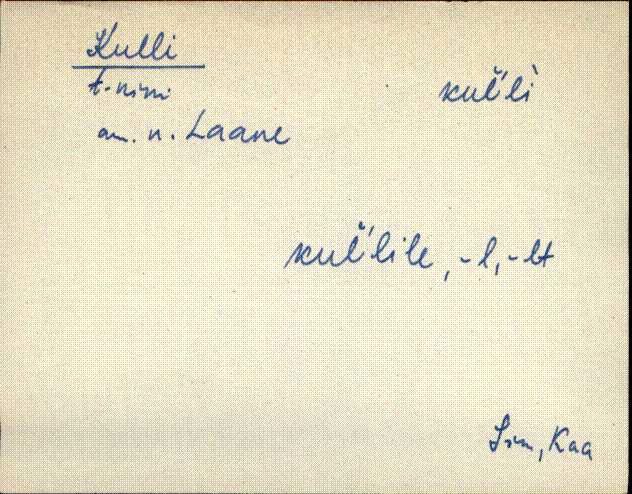 Kulli
t. nimi
kul̆'li`
am. n. Laane
kul̆'lile, -l, -lt
Krn, Kaa